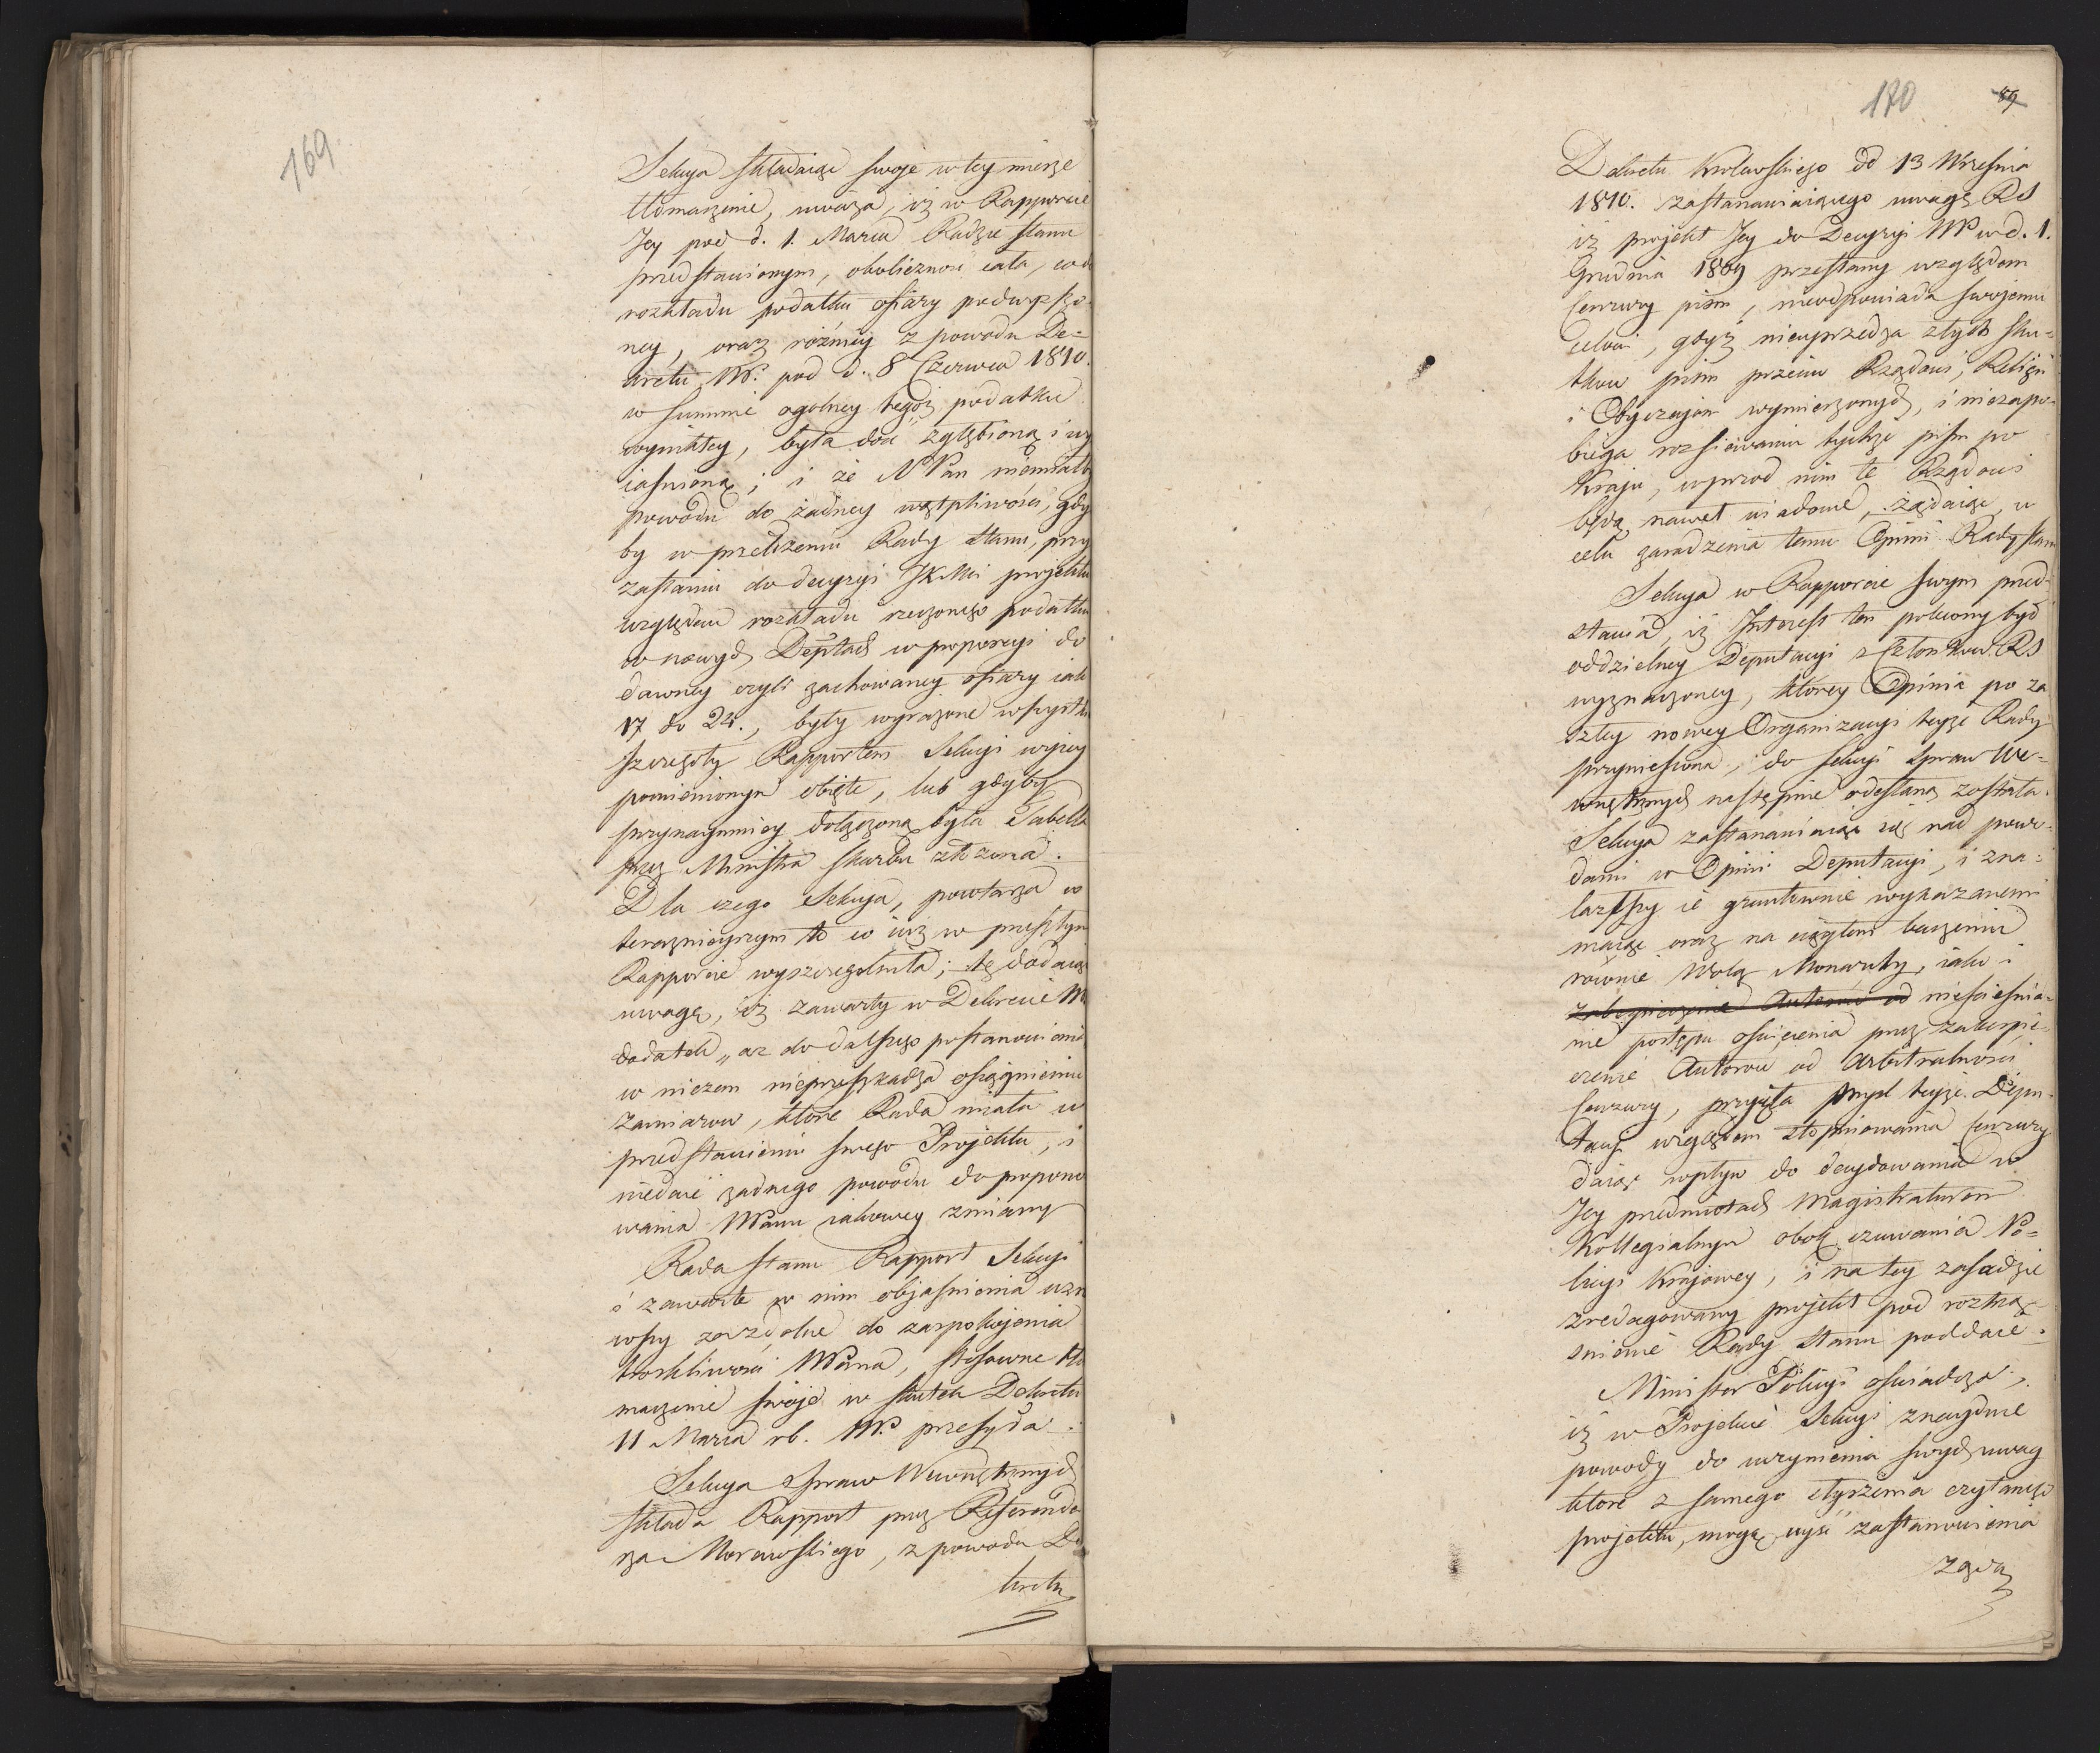 169
Sekcya składaiąc swoje w tey mierze
tłomaczenie, uważa, iż w Rapporcie
Jey pod d. 1. Marca Radzie stanu
przedstawionym, okoliczność cała, co do
rozkładu podatku ofiary podwyższo-
ney, oraz różnicy z powodu De=
kretu NP. pod d. 8 Czerwca 1810.
w summie ogolney tegoż podatku
wynikłey, była dość zgłębioną i wy
iaśnioną; i że N Pan niemiałby
powodu do żadney wątpliwości, gdy
by w przełożeniu Rady Stanu, przy
zasłaniu do decyzyi JKMci projektu
względem rozkładu rzeczonego podatku
w nowych Deptach w proporcyi do
dawney czyli zachowaney ofiary iak
17 do 24., były wyrażone wszystkie
szczegóły Rapportem Sekcyi wyżey
pomienionym obięte, lub gdyby
przynaymniey dołączoną była Tabella
przez Ministra skarbu złożona.
Dla czego Sekcya, powtarza w
teraznieyszym to co iuż w przeszłym
Rapporcie wyszczegolniła; tę dodaiąc
uwagę, iż zawarty w Dekrecie NP
dodatek „aż do dalszego postanowienia
w niczem nieprzeszkadza osiągnieniu
zamiarow, które Rada miała w
przedstawieniu swego Projektu, i
niedaie żadnego powodu do propono
wania NPanu takowey zmiany
Rada stanu Rapport Sekcyi
i zawarte w nim objaśnienia uzna
wszy za zdolne do zaspokojenia
troskliwości NPana, stosowne tło
maczenie swoje w skutek Dekretu
11 Marca rb. NP. przesyła.
Sekcya Spraw Wewnętrznych
składa Rapport przez Referenda
rza Morawskiego, z powodu De
kretu
170 89
Dekretu Krolewskiego dd 13 Września
1810. zastanawiaiącego uwagę RS
iż projekt Jey do Decyzyi NP w d. 1.
Grudnia 1809 przesłany względem
Cenzury pism, nieodpowiada swojemu
celowi, gdyż nieuprzedza złych sku-
tkow pism przeciw Rządowi, Religii
i Obyczajom wymierzonych, i niezapo-
biega rozsiewaniu tychże pism po
kraju, wprzod nim te Rządowi
będą nawet wiadome, żądaiąc w
celu zaradzenia temu Opinii Rady stanu
Sekcya w Rapporcie swym przed-
stawia, iż Interess ten polecony był
oddzielney Deputacyi z Członkow RS
wyznaczoney, którey Opinia po za
szłey nowey Organizacyi teyże Rady
przyniesiona, do Sekcyi Spraw We-
wnętrznych następnie odesłaną została.
Sekcya zastanawiaiąc się nad powo-
dami w Opinii Deputacyi, i zna-
lazłszy ie gruntownie wykazanemi
maiąc oraz na ciągłem baczeniu
rownie Wolą Monarchy, iako i
zabezpieczenie Autorow od nieścieśnia-
nie postępu oświecenia przez zabezpie-
czenie Autorow od arbitralności
Cenzury, przyięła myśl teyże Depu-
tacyi względem stopniowania Cenzury
daiąc wpływ do decydowania w
Jey przedmiotach Magistraturom
Kollegialnym obok czuwania Po-
licyi Krajowey, i na tey zasadzie
zredagowany projekt pod roztrzą-
śnienie Rady Stanu poddaie.
Minister Policyi oświadcza,
iż w Projekcie Sekcyi znayduie
powody do uczynienia swych uwag
które z samego słyszenia czytanego
projektu, mogą uyść zastanowienia
żąda